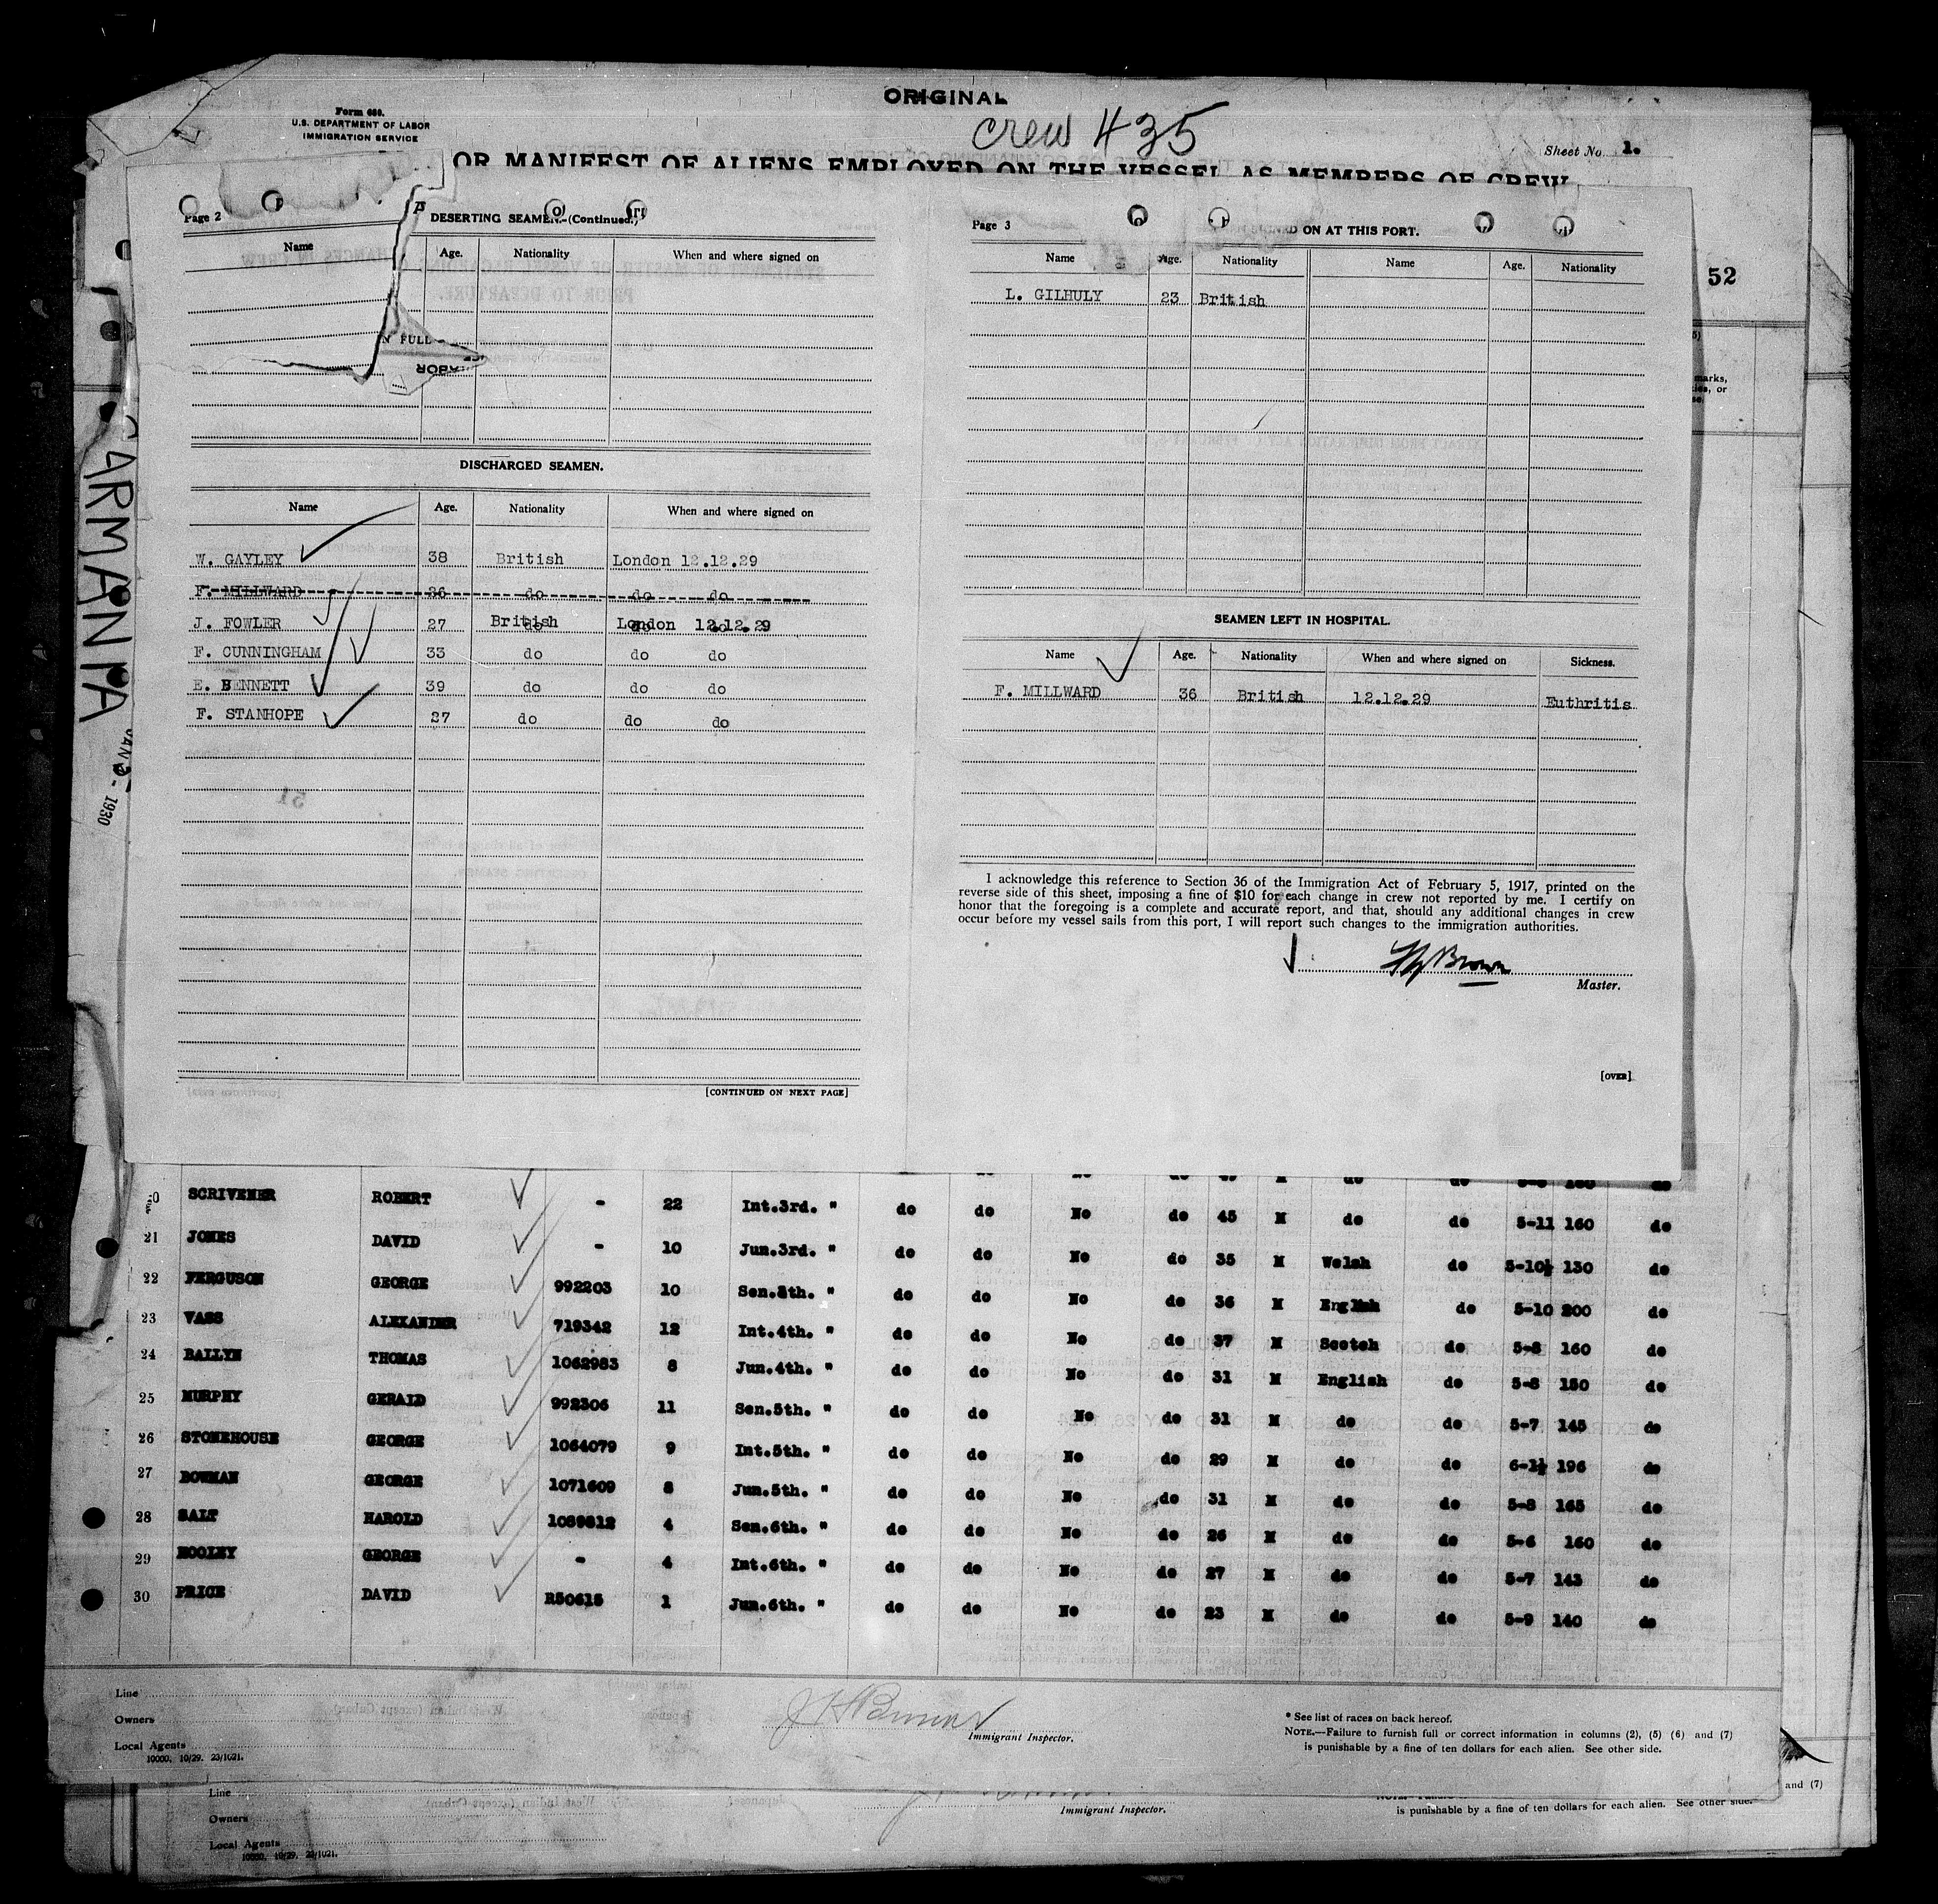 ORIGINAL
crew 435
Form 680.
U.S. DEPARTMENT OF LABOR
IMMIGRATION SERVICE
Sheet No. 1.
OR MANIFEST OF ALIENS EMPLOYED ON THE VESSEL AS MEMBERS OF CREW
52
Page 2
DESERTING SEAMEN.-(Continued.)
Name Age. Nationality When and where signed on
N FULL
DISCHARGED SEAMEN.
Name Age. Nationality When and where signed on
W. GAYLEY 38 British London 12.12.29
F. MILLWARD 36 do do do
J. FOWLER 27 British London 12.12.29
F. CUNNINGHAM 33 do do do
E. BENNETT 39 do do do
F. STANHOPE 27 do do do
[CONTINUED ON NEXT PAGE]
Page 3
ON AT THIS PORT.
Name Age. Nationality Name Age. Nationality
L. GILHULY 23 British
SEAMEN LEFT IN HOSPITAL.
Name Age. Nationality When and where signed on Sickness.
F. MILLWARD 36 British 12.12.29 Euthritis
I acknowledge this reference to Section 36 of the Immigration Act of February 5, 1917, printed on the
reverse side of this sheet, imposing a fine of $10 for each change in crew not reported by me. I certify on
honor that the foregoing is a complete and accurate report, and that, should any additional changes in crew
occur before my vessel sails from this port, I will report such changes to the immigration authorities.
Brown
Master.
[OVER]
CARMANIA
JAN - 1930
SCRIVENER ROBERT - 22 Int.3rd. " do do No do 45 M do do 5-11 160 do
21 JONES DAVID - 10 Jun.3rd. " do do No do 35 M Welsh do 5-10½ 130 do
22 FERGUSON GEORGE 992203 10 Sen.4th. " do do No do 36 M English do 5-10 200 do
23 VASS ALEXANDER 719342 12 Int.4th. " do do No do 37 M Scotch do 5-8 160 do
24 BALLYN THOMAS 1062983 8 Jun.4th. " do do No do 31 M English do 5-8 150 do
25 MURPHY GERALD 992306 11 Sen.5th. " do do No do 31 M do do 5-7 145 do
26 STONEHOUSE GEORGE 1064079 9 Int.5th. " do do No do 29 M do do 6-1½ 196 do
27 BOWMAN GEORGE 1071609 8 Jun.5th. " do do No do 31 M do do 5-8 165 do
28 SALT HAROLD 1089812 4 Sen.6th. " do do No do 26 M do do 5-6 160 do
29 HOOLEY GEORGE - 4 Int.6th. " do do No do 27 M do do 5-7 143 do
30 PRICE DAVID R50615 1 Jun.6th. " do do No do 23 M do do 5-9 140 do
Line
Owners
Local Agents
10000. 10/29. 23/1021.
Immigrant Inspector.
* See list of races on back hereof.
NOTE.—Failure to furnish full or correct information in columns (2), (5) (6) and (7)
is punishable by a fine of ten dollars for each alien. See other side.
and (7)
Line
Owners
Local Agents
10000. 10/29. 23/1021.
Immigrant Inspector.
is punishable by a fine of ten dollars for each alien. See other side.